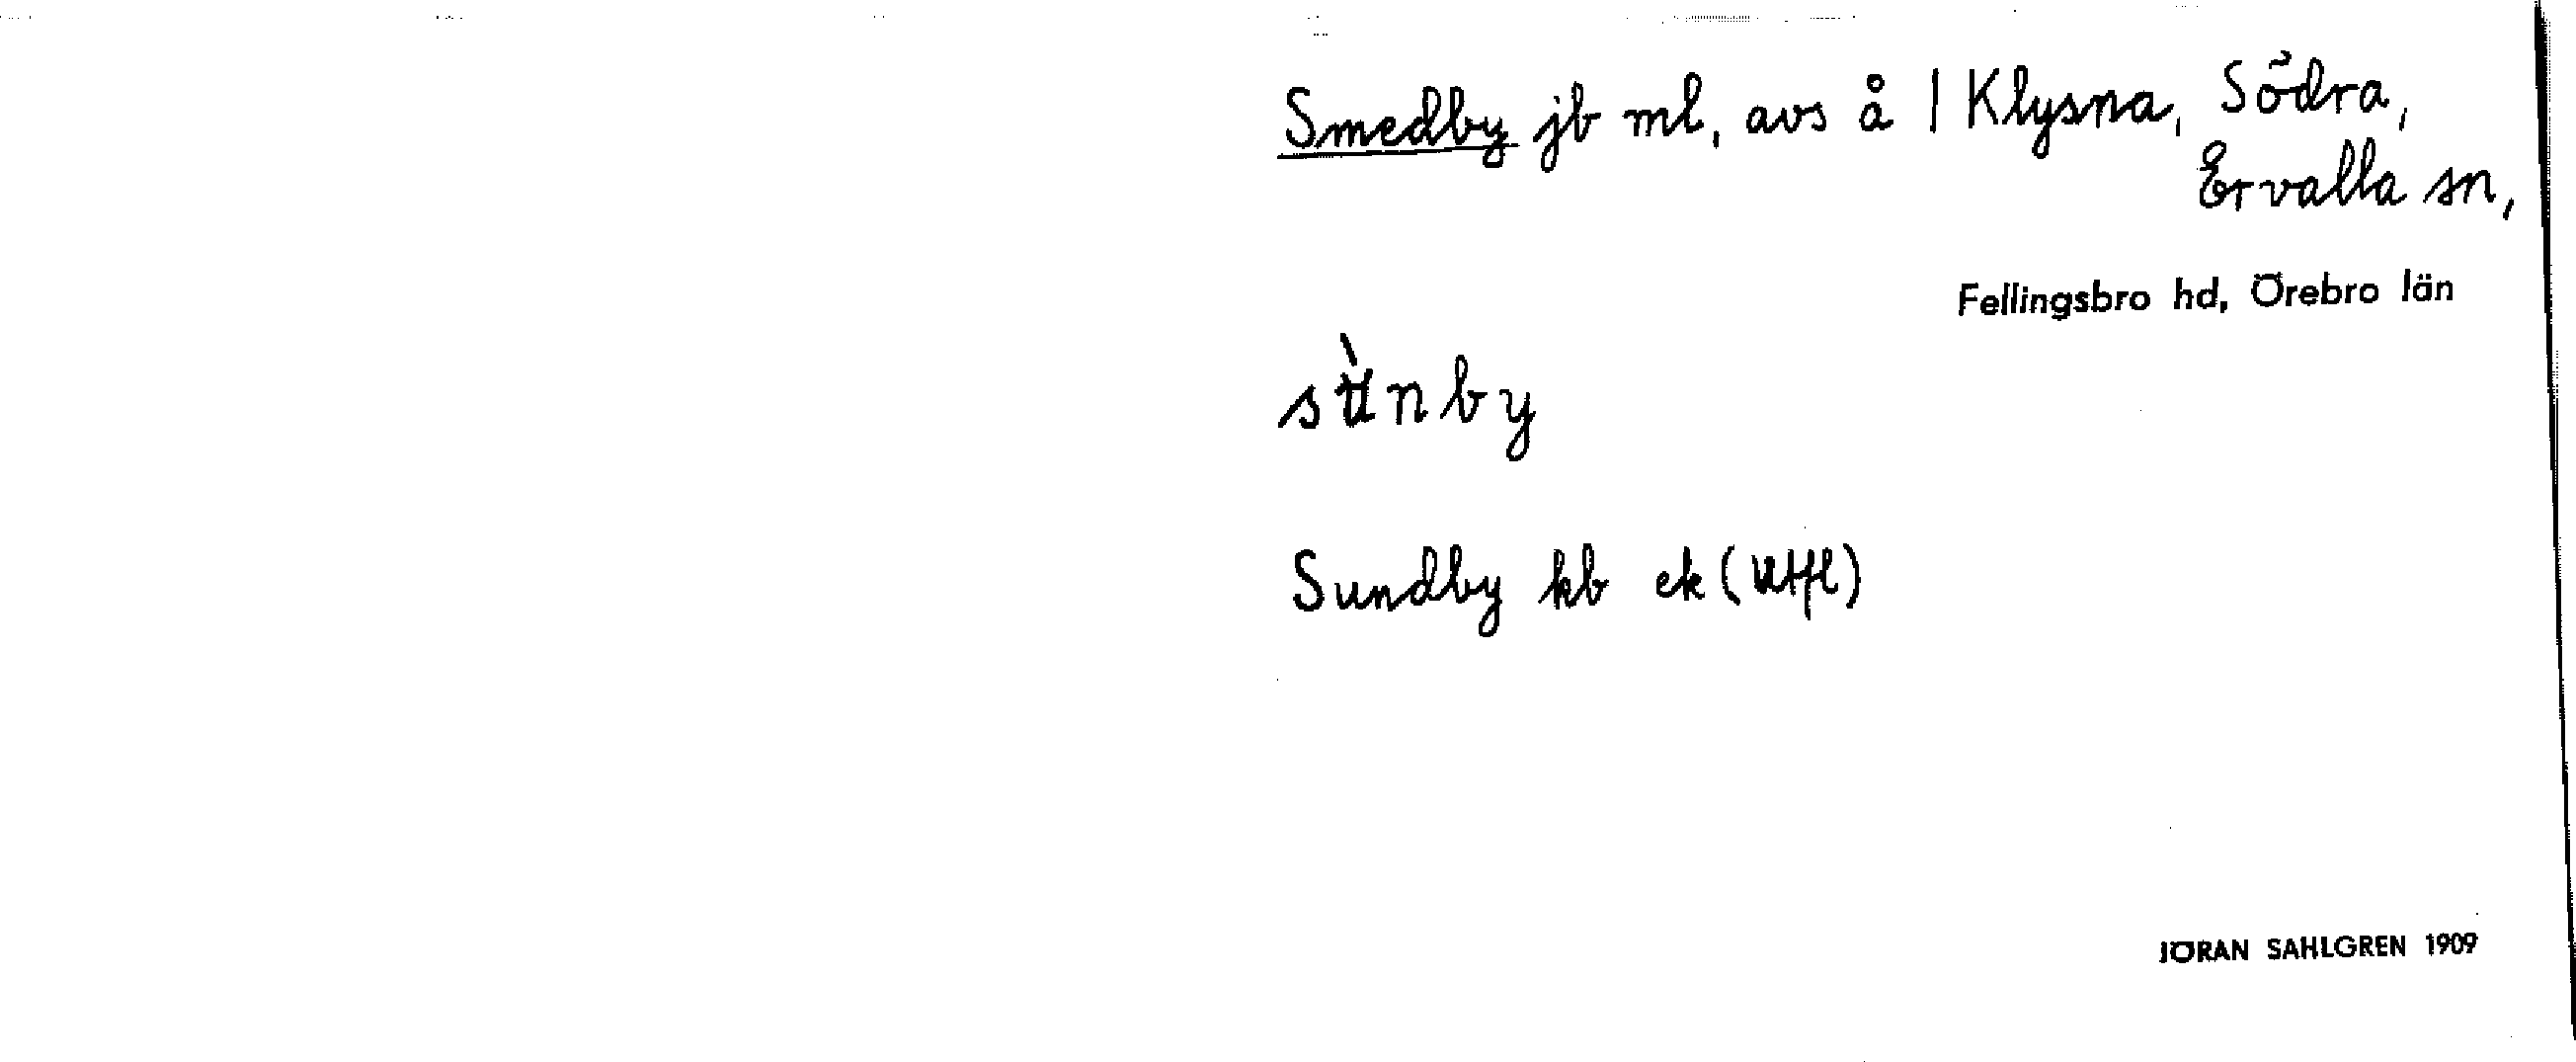 Smedby jb ml, avs å | Klysna, Södra,
Ervalla sn,
Fellingsbro hd, Örebro län
sùnby
Sundby kb ek (Utfl)
JÖRAN SAHLGREN 1909